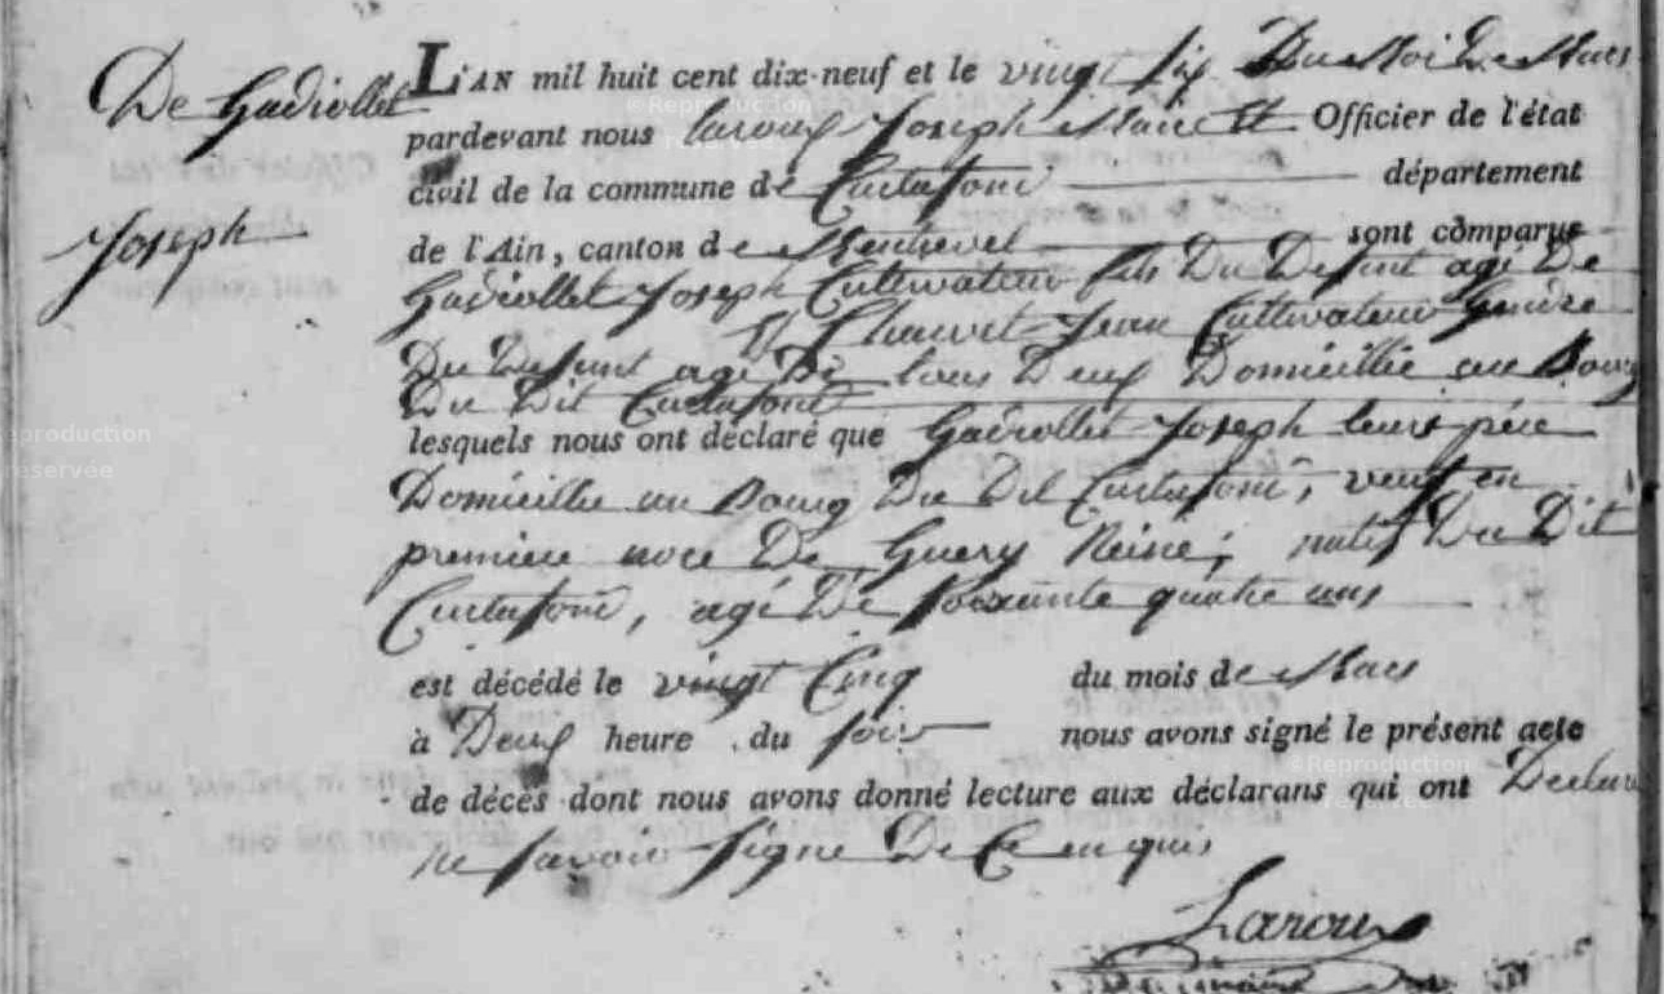 De Gadiollet
Joseph
L'AN mil huit cent dix-neuf et le vingt six Du Moi De Mars
pardevant nous Laroux Joseph Maire et Officier de l'état
civil de la commune de Curtafond département
de l'Ain, canton de Montrevel sont comparus
Gadiollet Joseph Cultivateur fils Du Defunt agé De
Et Chanvet Jean Cultivateur Gendre
Du Defunt agé De tous Deux Domicillié au Bourg
Du Dit Curtafond
lesquels nous ont déclaré que Gadiollet Joseph leurs père
Domicillié au Bourg Du Dit Curtafond, veuf en
premiere noce De Guery Reine, natif Du Dit
Curtafond, agé De Soixante quatre ans
est décédé le vingt Cinq du mois de Mars
à Deux heure du soir nous avons signé le présent acte
de décès dont nous avons donné lecture aux déclarans qui ont Declaré
ne savoir signe De Ce enquis
Laroux
©Reproduction
réservée
©Reproduction
réservée